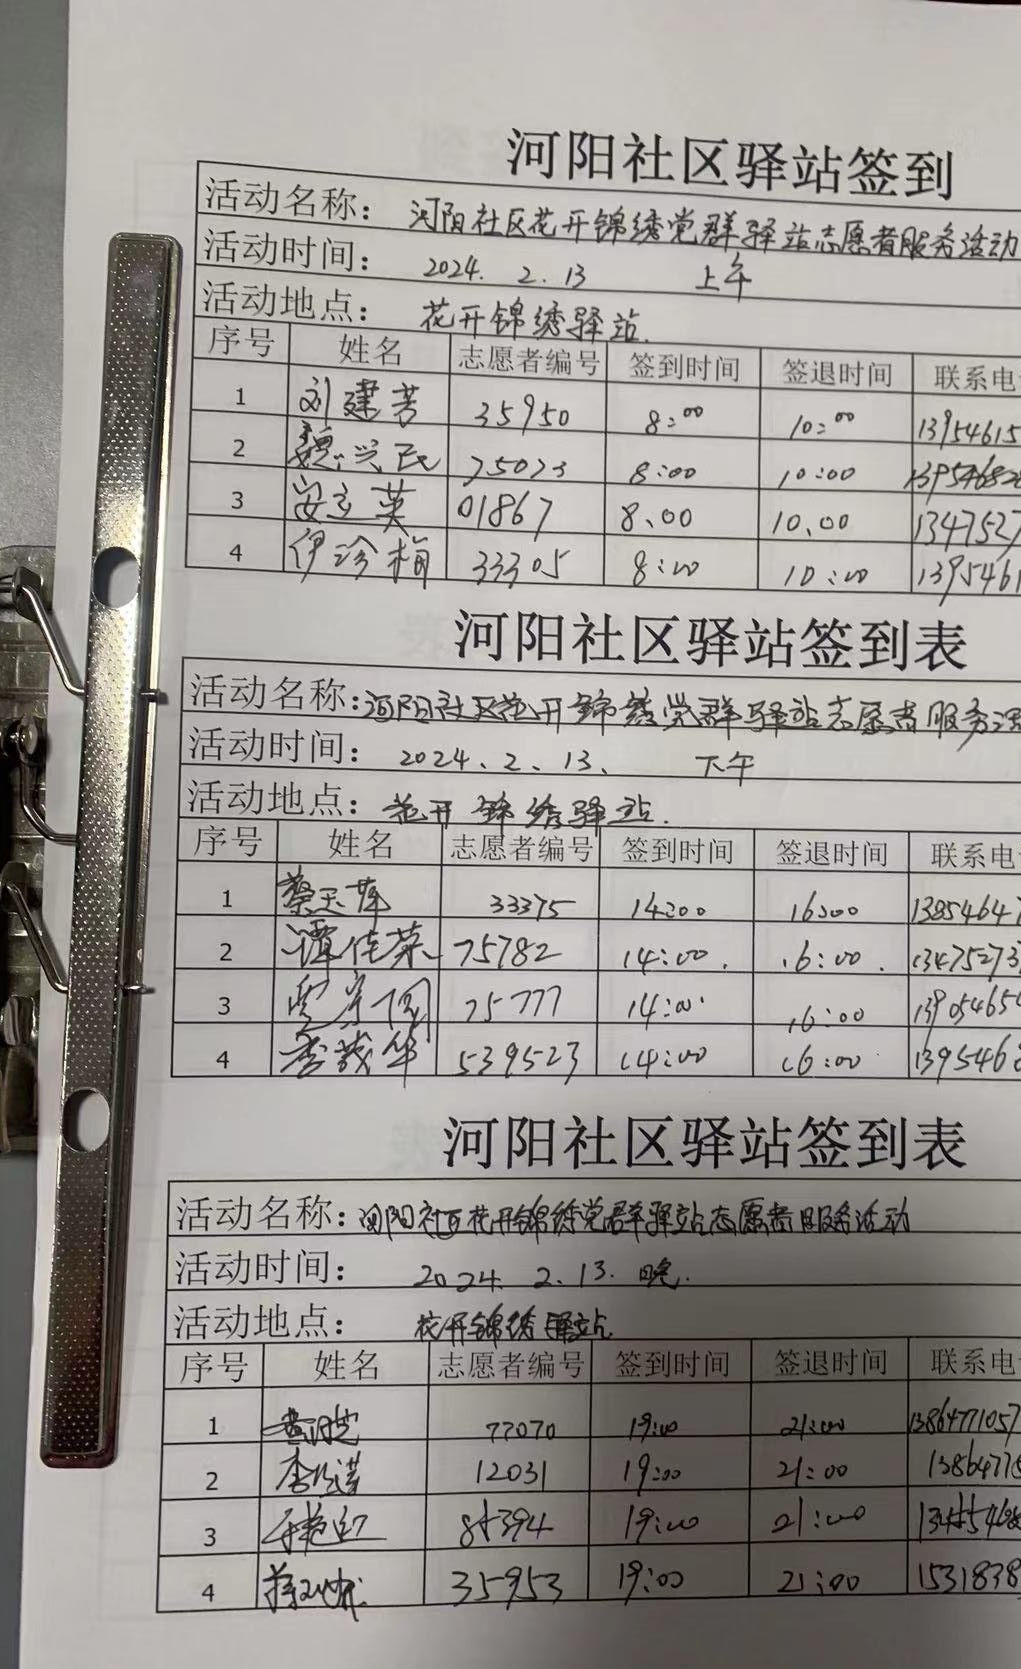 河阳社区驿站签到
活动名称： 河阳社区花开锦绣党群驿站志愿者服务活动
活动时间： 2024. 2. 13 上午
活动地点： 花开锦绣驿站.
序号 姓名 志愿者编号 签到时间 签退时间 联系电
1 刘建芳 35950 8:00 10:00 13954615
2 魏兴民 75073 8:00 10:00
3 安立英 01867 8、00 10.00 1347527
4 伊珍梅 33305 8:00 10:00 1395461
河阳社区驿站签到表
活动名称:河阳社区花开锦绣党群驿站志愿者服务活
活动时间： 2024、2、13、 下午
活动地点： 花开锦绣驿站.
序号 姓名 志愿者编号 签到时间 签退时间 联系电
1 蔡玉萍 33375 14:00 16:00 1385464
2 谭佳荣 75782 14:00. 16:00. 13475273
3 75777 14:00 16:00 13905465
4 李茂华 539523 14:00 16:00 1395468
河阳社区驿站签到表
活动名称：河阳社区花开锦绣党群驿站志愿者服务活动
活动时间： 2024. 2. 13. 晚.
活动地点： 花开锦绣驿站
序号 姓名 志愿者编号 签到时间 签退时间 联系电
1 77070 19:00 21:00 13864771057
2 12031 19:00 21:00 13864771
3 19:00 21:00
4 35953 19:00 21:00 1531838